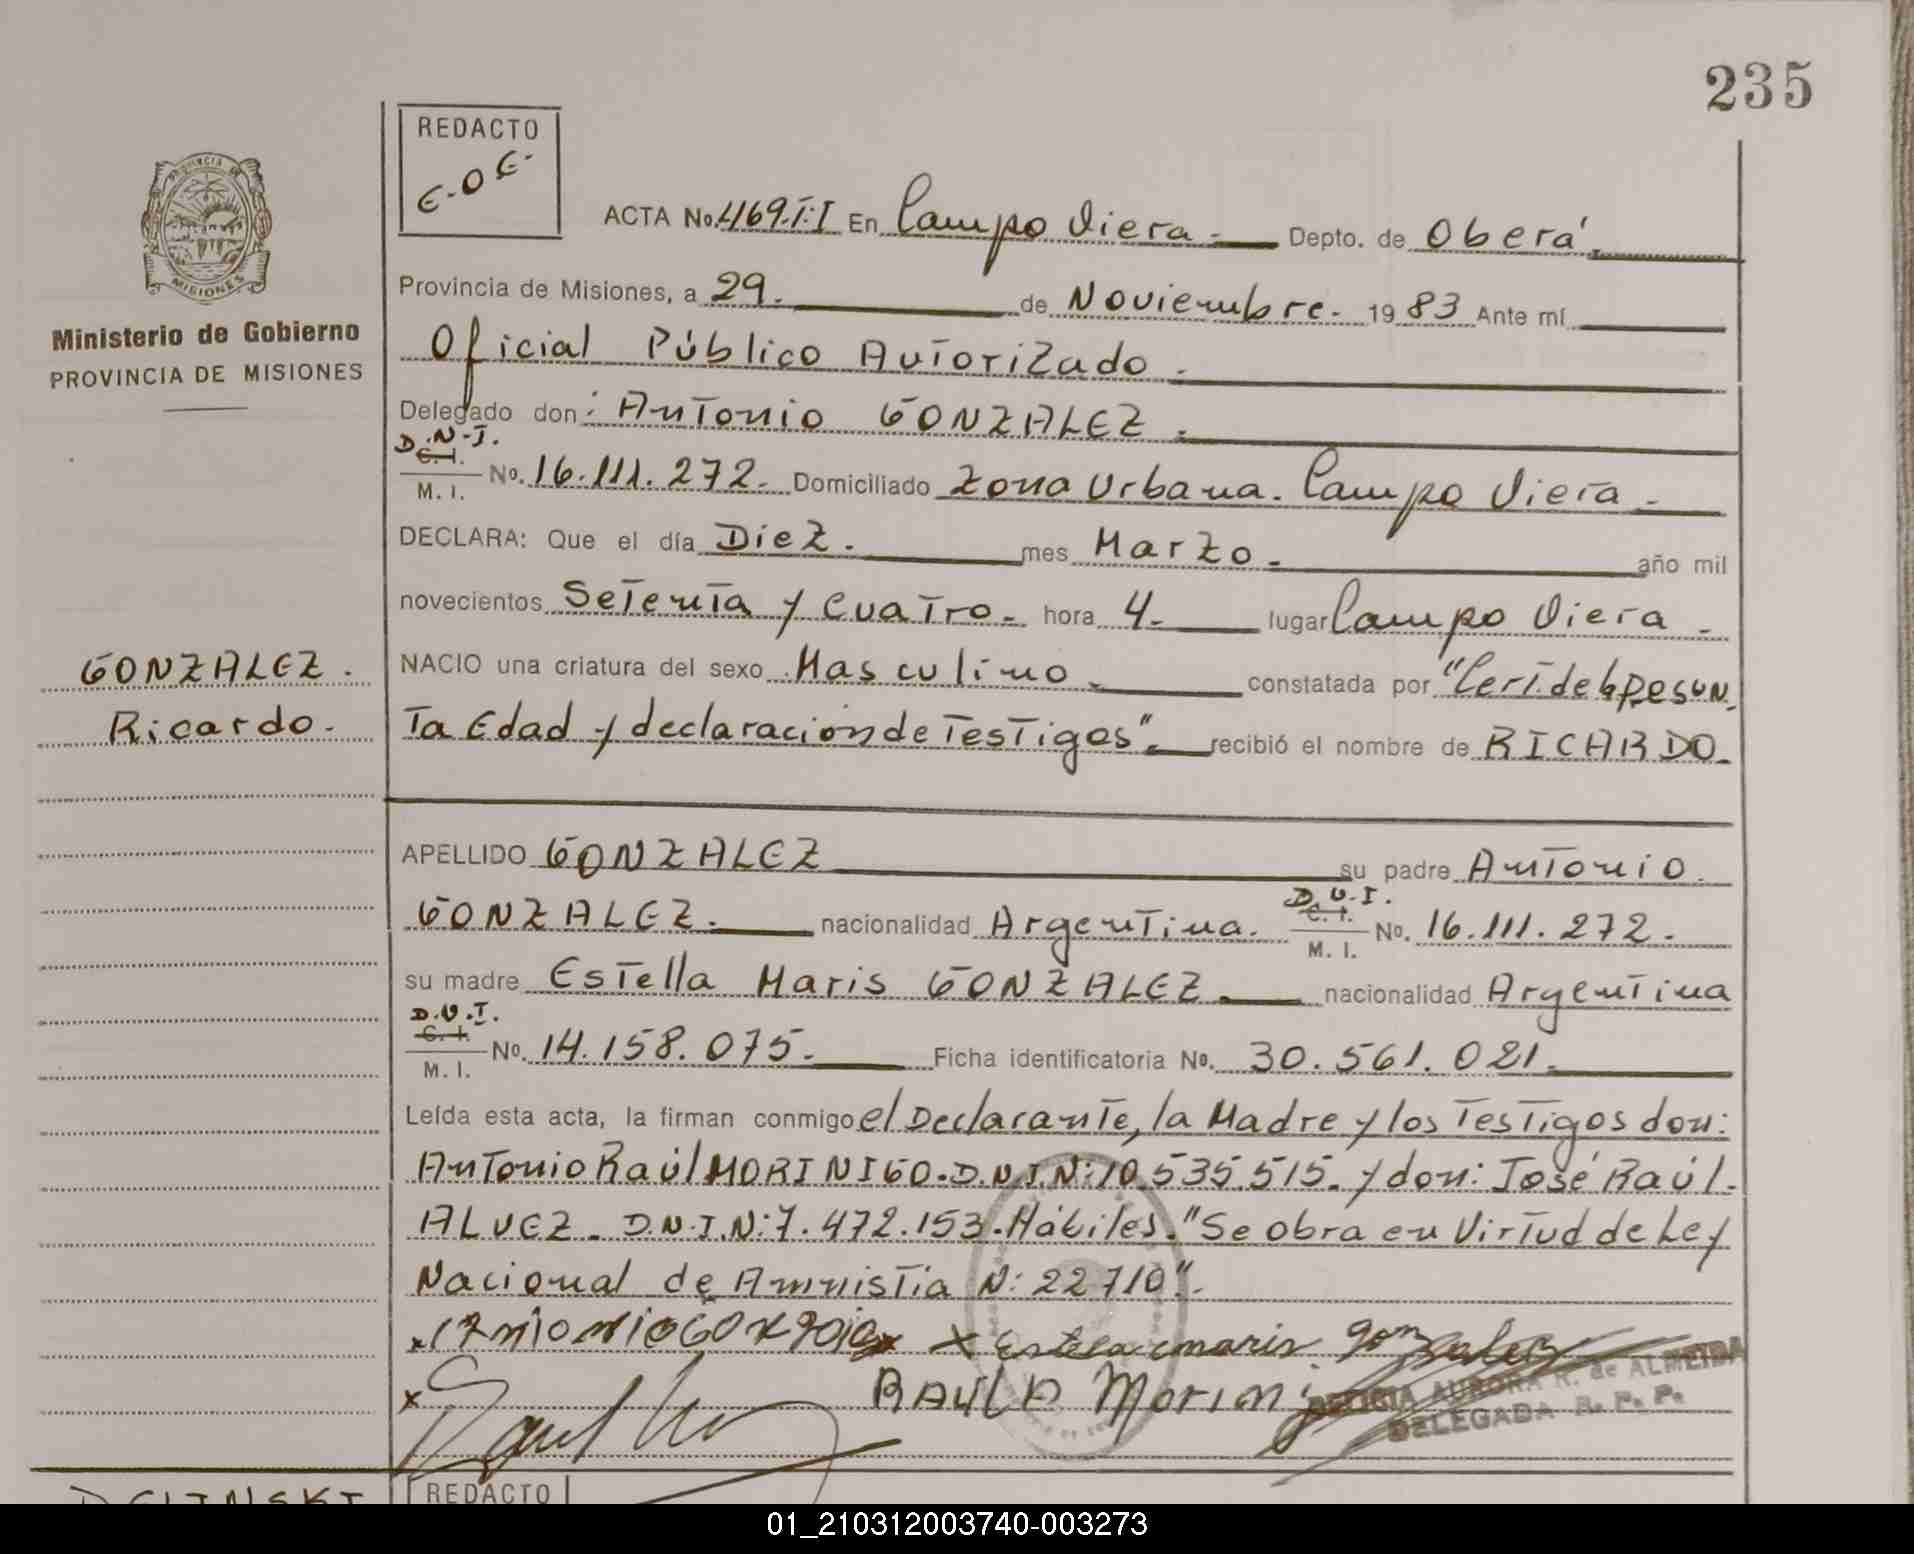 235
REDACTO
E-O E-
ACTA No. 469.T:I En Campo Viera. Depto. de Oberá.
Ministerio de Gobierno
PROVINCIA DE MISIONES
Provincia de Misiones, a 29. de Noviembre. 19 83 Ante mí
Oficial Público Autorizado.
Delegado don: Antonio GONZALEZ.
D.N.I.
C. I.
M. I.
No. 16.111.272. Domiciliado Zona Urbana. Campo Viera.
DECLARA: Que el día Diez. mes Marzo. año mil
novecientos Setenta y Cuatro. hora 4. lugar Campo Viera.
GONZALEZ.
Ricardo.
NACIO una criatura del sexo Masculino. constatada por "Cert. de presun
ta Edad y declaración de Testigos". recibió el nombre de RICARDO.
APELLIDO GONZALEZ su padre Antonio.
GONZALEZ. nacionalidad Argentina. D.N.I. C. I. M. I. No. 16.111.272.
su madre Estella Maris GONZALEZ. nacionalidad Argentina
D.N.I.
C. I.
M. I.
No. 14.158.075. Ficha identificatoria No. 30.561.021.
Leída esta acta, la firman conmigo el Declarante, la Madre y los Testigos don:
Antonio Raúl MORINIGO. D.N.I.N: 10.535.515. y don: José Raúl.
ALVEZ. D.N.I.N: 7.472.153. Hábiles. "Se obra en Virtud de Ley
Nacional de Amnistia N: 22710".
x Antonio GONZALEZ x Estela maris gonzalez
x RAUL A Morini
LETICIA AURORA R. de ALMEIDA
DELEGADA R. P. P.
REDACTO
01_210312003740-003273